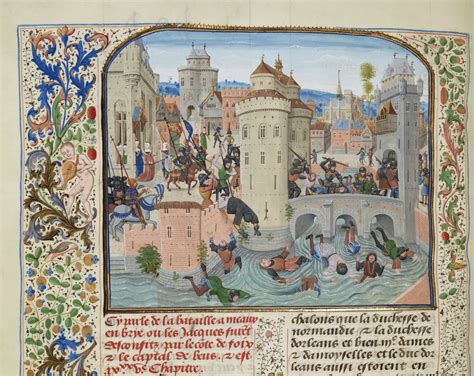 Cy parle de la bataille a meaux
en brye ou les Jacques furēt
desconfis par le cōte de foix
⁊ le captal de beus. ⁊ est
Chapitre.
chalons que la duchesse de
normandie ⁊ la duchesse
dorleans et bien dames
⁊ damoyselles et le duc dor
leans aussi estoient en